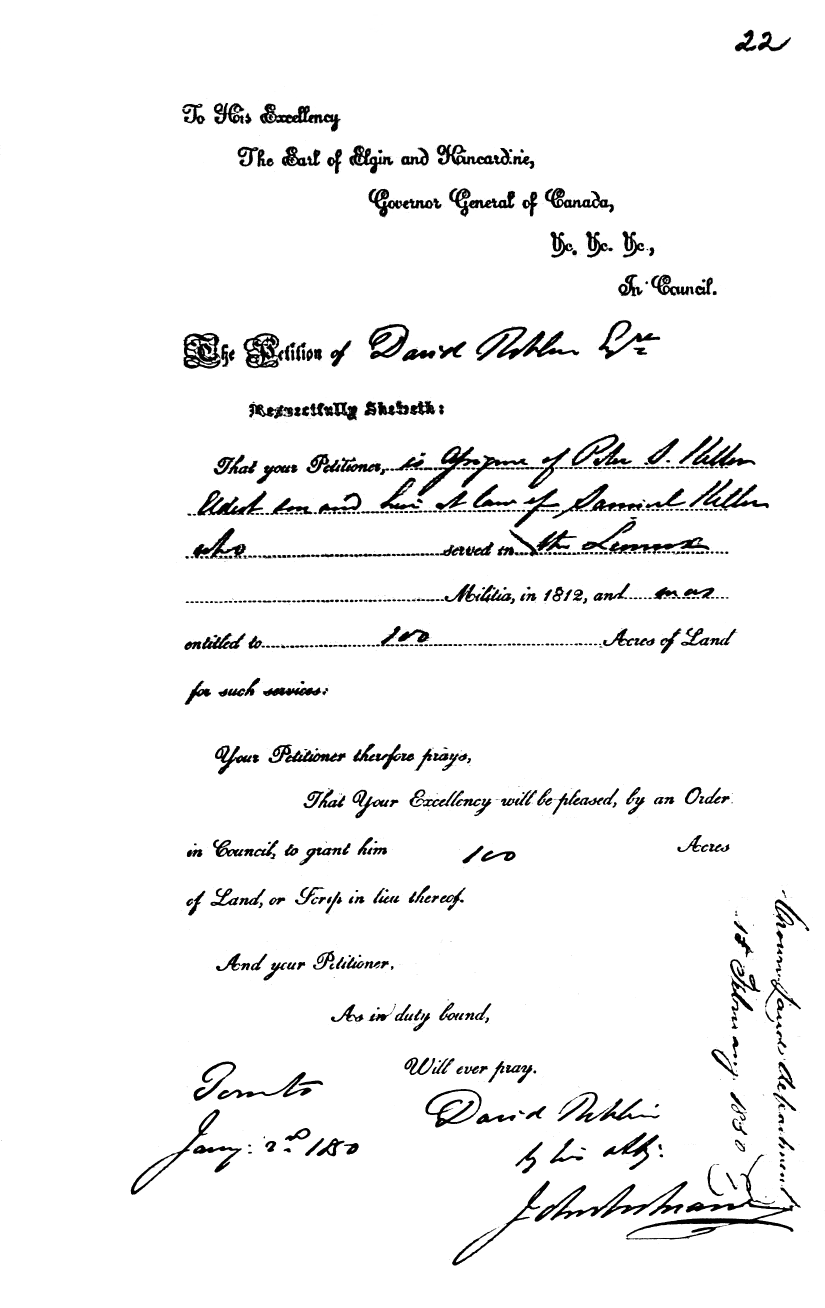 22
To His Excellency
The Earl of Elgin and Kincardine,
Governor General of Canada,
&c. &c. &c.,
In Council.
The Petition of David Roblin Esqre
Respectfully Sheweth:
That your Petitioner, is Assignee of Peter S.
Eldest son and heir at law of Samuel
who served in the Lennox
Militia, in 1812, and was
entitled to 100 Acres of Land
for such services:
Your Petitioner therefore prays,
That Your Excellency will be pleased, by an Order
in Council, to grant him 100 Acres
of Land, or Scrip in lieu thereof.
And your Petitioner,
As in duty bound,
Will ever pray.
Toronto
Jany: 2nd 1850
David Roblin
by his atty:
Crown Lands Department
1st February 1850